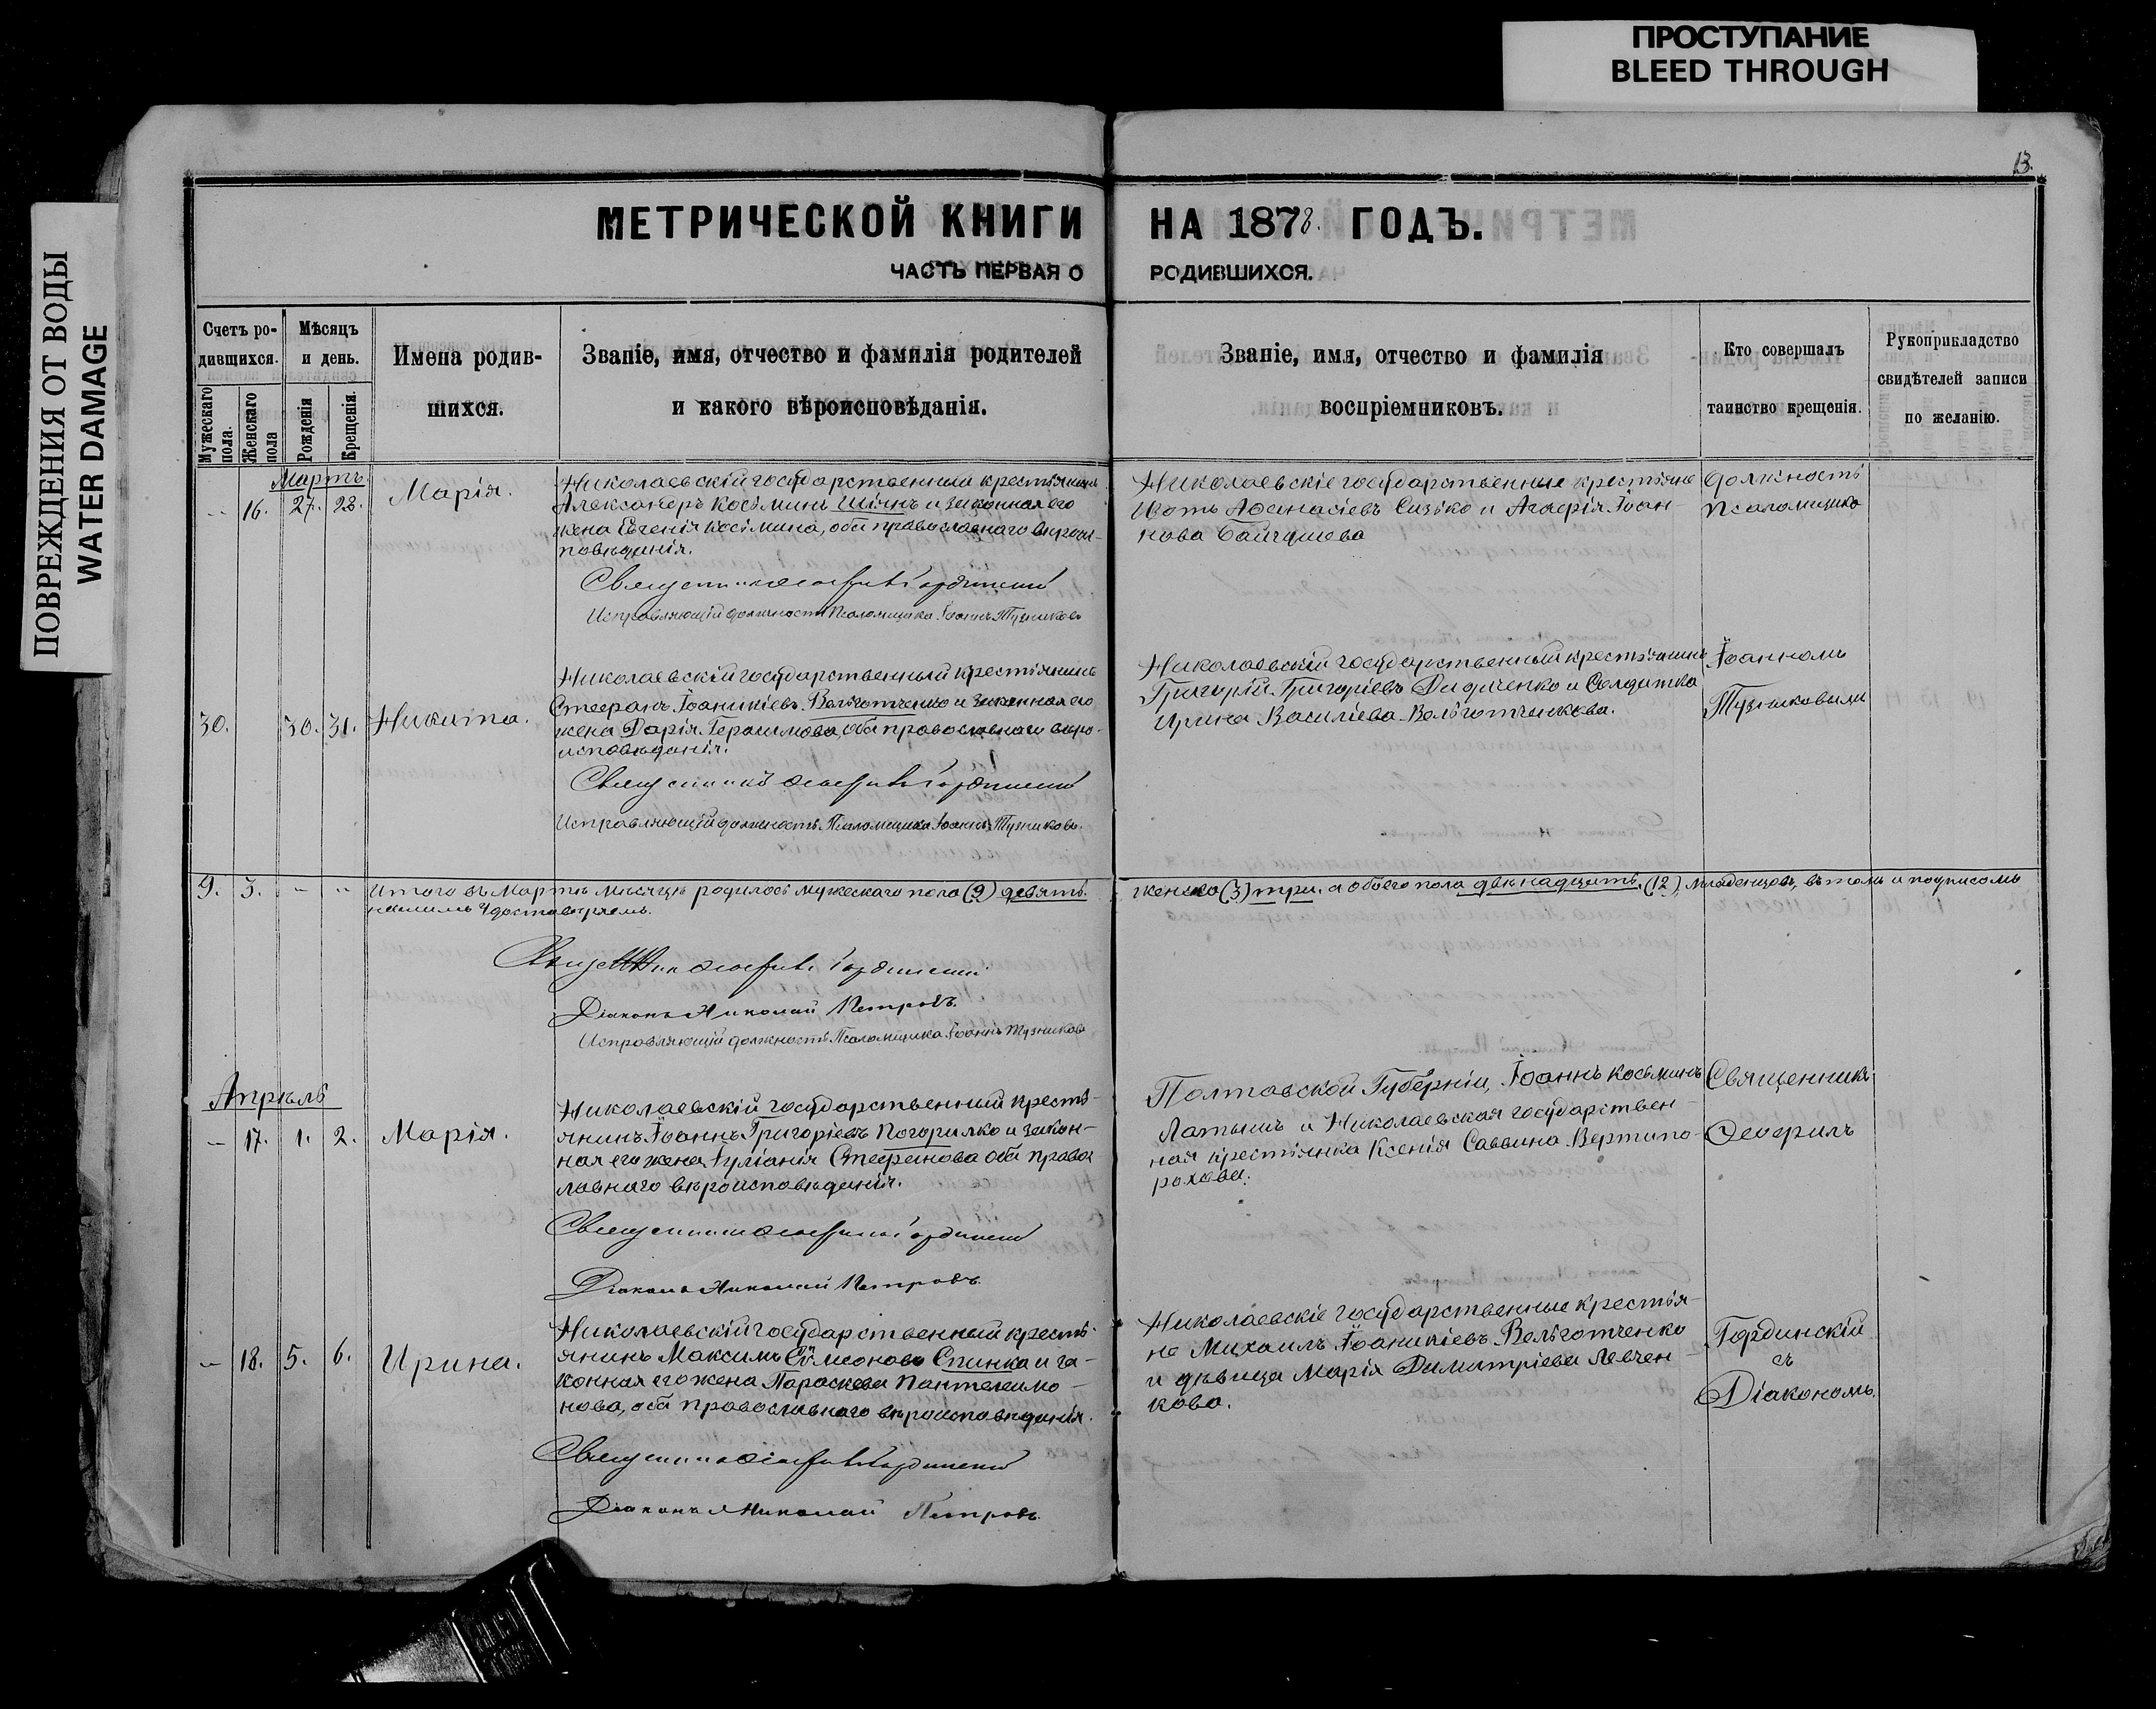 ПРОСТУПАНИЕ
BLEED THROUGH
ПОВРЕЖДЕНИЯ ОТ ВОДЫ
WATER DAMAGE
13.
МЕТРИЧЕСКОЙ КНИГИ НА 1878. ГОДЪ.
ЧАСТЬ ПЕРВАЯ О РОДИВШИХСЯ.
Счетъ ро-
дившихся.
Мужескаго пола.
Женскаго пола
Мѣсяцъ
и день.
Рожденія
Крещенія.
Имена родив-
шихся.
Званіе, имя, отчество и фамилія родителей
и какого вѣроисповѣданія.
Званіе, имя, отчество и фамилія
воспріемниковъ.
Кто совершалъ
таинство крещенія.
Рукоприкладство
свидѣтелей записи
по желанію.
Мартъ
16. 27. 28. Марія.
Николаевскій государственный крестьянинъ
Александръ Косьминъ Шіянъ и законная его
жена Евгенія Косьмина, оба православнаго вѣроис-
повѣданія.
Священникъ Іосифъ Гординскій
Исправляющій должность Псаломщика Іоаннъ Тузниковъ
Николаевскіе государственные крестьяне
Аѳанасіевъ Сизько и Агаѳія Іоан-
нова
должность
Псаломщика
30. 30. 31. Никита.
Николаевскій государственный крестьянинъ
Стефанъ Іоаникіевъ Вельготченко и законная его
жена Дарія Герасимова, оба православнаго вѣро-
исповѣданія.
Священникъ Іосифъ Гординскій
Исправляющій должность Псаломщика Іоаннъ Тузниковъ.
Николаевскій государственный крестьянинъ
Григорій Григоріевъ Дидиченко и Солдатка
Ирина Василіева Вельготченкова.
Іоанномъ
Тузниковымъ
9. 3. - - Итого въ Мартѣ мѣсяцѣ родилось мужескаго пола (9) девять. женска (3) три. а обоего пола двѣнадцать. (12), младенцовъ, въ томъ и подписомъ
нашимъ удостовѣряемъ.
Священникъ Іосифъ Гординскій
Діаконъ Николай Петровъ.
Исправляющій должность Псаломщика Іоаннъ Тузниковъ
Апрѣль
- 17. 1. 2. Марія.
Николаевскій государственный кресть-
янинъ Іоаннъ Григоріевъ Погорилко и закон-
ная его жена Іуліанія Стефанова оба правос
лавнаго вѣроисповѣданія.
Священникъ Іосифъ Гординскій
Діаконъ Николай Петровъ
Полтавской Губерніи, Іоаннъ Косьминъ
Латышъ и Николаевская государствен-
ная крестьянка Ксенія Саввина Вертипо-
рохова.
Священникъ
- 18. 5. 6. Ирина.
Николаевскій государственный кресть-
янинъ Максимъ Сѵмеоновъ Спинка и за-
конная его жена Параскева Пантелеимо-
нова, оба православнаго вѣроисповѣданія.
Священникъ Іосифъ Гординскій
Діаконъ Николай Петровъ.
Николаевскіе государственные крестья-
не Михаилъ Іоаникіевъ Вельготченко
и дѣвица Марія Димитріева Левчен
кова.
Гординскій
съ
Діакономъ.